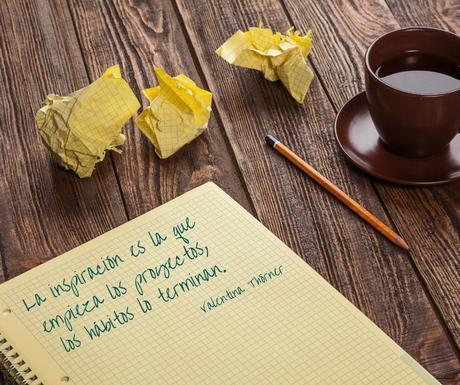 La inspiración es la que
empieza los proyectos,
los hábitos lo terminan.
Valentina Thörner